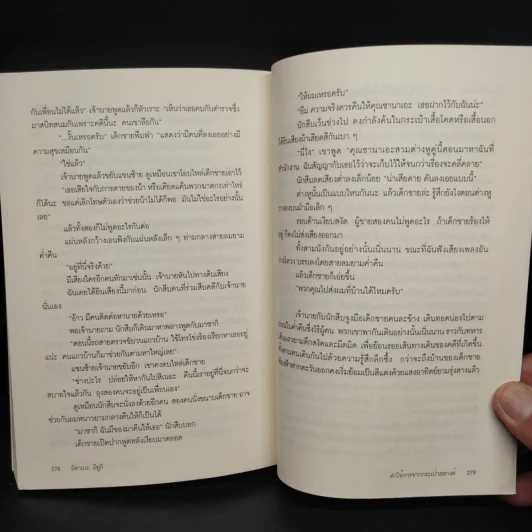 กับเพื่อนไม่ได้แล้ว" เจ้านายพูดแล้วก็หัวเราะ "เห็นว่าเธอคบกับตำรวจซึ่ง
มาสนิทสนมกันเพราะคดีนี้นะ คนเขาลือกัน"
"...งั้นเหรอครับ" เด็กชายพึมพำ "แสดงว่ามีคนที่ลงเอยอย่างมี
ความสุขเหมือนกัน"
"ใช่แล้ว"
เจ้านายพูดแล้วขยับแขนซ้าย ดูเหมือนเขาโอบไหล่เด็กชายเอาไว้
"เธอเสียใจกับการตายของน้า หรือเคียดแค้นพวกฆาตกรเท่าไหร่
ก็ได้นะ ขอแค่เลิกโทษตัวเองว่าช่วยน้าไม่ได้ก็พอ มันไม่ใช่อะไรอย่างนั้น
เลย"
แล้วทั้งสองก็ไม่พูดอะไรกันต่อ
แผ่นหลังกว้างเอนพิงกับแผ่นหลังเล็ก ๆ ท่ามกลางสายลมยาม
ค่ำคืน
"อยู่ที่นี่จริงด้วย"
มีเสียงใครอีกคนทักมาเช่นนั้น เจ้านายหันไปทางต้นเสียง
ฉันเคยได้ยินเสียงนี้มาก่อน นักสืบคนที่ร่วมสืบคดีกับเจ้านาย
นั่นเอง
"อ้าว มีคนติดต่อหานายด้วยเหรอ"
พอเจ้านายถาม นักสืบก็เดินมาพลางพูดกับมาซากิ
"ตอนนี้รถสายตรวจขับวนแถวบ้าน ใช้โทรโข่งร้องเรียกหาเธออยู่
แน่ะ คนแถวบ้านก็มาช่วยกันตามหาใหญ่เลย"
แขนซ้ายเจ้านายขยับอีก เขาคงตบไหล่เด็กชาย
"ช่างปะไร ปล่อยให้หากันไปสิเนอะ คืนนี้เราอยู่ที่นี่จนกว่าจะ
สบายใจแล้วกัน ลุงสองคนจะอยู่เป็นเพื่อนเอง"
ดูเหมือนนักสืบจะนั่งลงด้วยอีกคน สองคนนั่งขนาบเด็กชาย อาจ
ช่วยกันลมหนาวยามกลางคืนให้ก็เป็นได้
"มาซากิ ฉันมีของมาคืนให้เธอ" นักสืบบอก
เด็กชายเปิดปากพูดหลังเงียบมาตลอด
278 มิยาเบะ มิยูกิ
"ให้ผมเหรอครับ"
"อืม ความจริงควรคืนให้คุณซานาเอะ เธอฝากไว้กับฉันน่ะ"
นักสืบเว้นช่วงไป คงกำลังค้นในกระเป๋าเสื้อโคตหรือเสื้อนอก
ได้ยินเสียงผ้าเสียดสีกันเบา ๆ
"นี่ไง" เขาพูด "คุณซานาเอะสวมต่างหูคู่นี้ตอนมาหาฉันที่
สำนักงาน ฉันสัญญากับเธอไว้ว่าจะเก็บไว้ให้จนกว่าเรื่องจะคลี่คลาย"
นักสืบลดเสียงต่ำลงเล็กน้อย "น่าเสียดาย คันลงเอยแบบนี้"
ต่างหูนั้นเป็นแบบไหนกันนะ แล้วเด็กชายล่ะ รู้สึกยังไงตอนต่างหู
วางลงบนฝ่ามือเล็ก ๆ
รอบด้านเงียบสงัด ผู้ชายสองคนไม่พูดอะไร ถ้าเด็กชายร้องไห้
อยู่ ก็คงไม่ส่งเสียงออกมา
ทั้งสามนั่งกันอยู่อย่างนั้นเนิ่นนาน ขณะที่ฉันฟังเสียงเพลงอัน
บรรเลงโดยสายลมยามค่ำคืน
แล้วเด็กชายก็เอ่ยขึ้น
"พวกคุณไปส่งผมที่บ้านได้ไหมครับ"
เจ้านายกับนักสืบจูงมือเด็กชายคนละข้าง เดินทอดน่องไปตาม
ถนนในค่ำคืนซึ่งไร้ผู้คน พวกเขาพากันเดินอย่างนั้นเนิ่นนาน ยาวกับทหาร
เดินแถวยามดึกสงัดและมืดมิด เพื่อย้อนรอยเส้นทางเดินของคดีที่เกิดขึ้น
ทั้งสามคนเดินกันไปด้วยความรู้สึกลึกซึ้ง กว่าจะถึงบ้านของเด็กชาย
ท้องฟ้าฟากตะวันออกคงเริ่มย้อมเป็นสีแดงด้วยแสงอาทิตย์ยามรุ่งสางแล้ว
คำให้การจากกระเป๋าสตางค์ 279